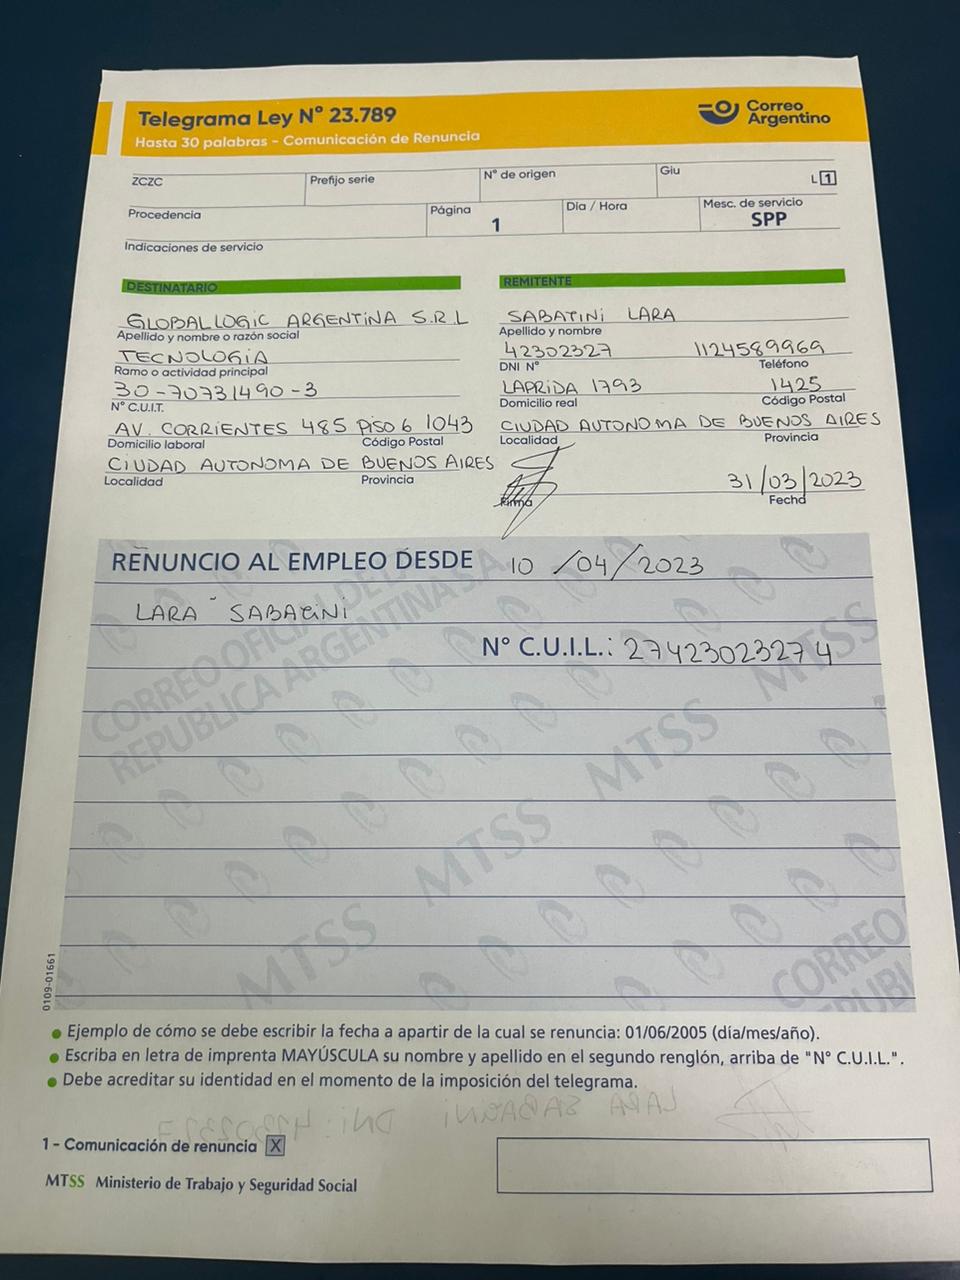 Telegrama Ley N° 23.789
Hasta 30 palabras - Comunicación de Renuncia
Correo
Argentino
ZCZC
Prefijo serie
N° de origen
Giu
L 1
Procedencia
Página
1
Dia / Hora
Mesc. de servicio
SPP
Indicaciones de servicio
DESTINATARIO
GLOBALLOGIC ARGENTINA S.R.L
Apellido y nombre o razón social
TECNOLOGIA
Ramo o actividad principal
30-70731490-3
N° C.U.I.T.
AV. CORRIENTES 485 PISO 6 1043
Domicilio laboral Código Postal
CIUDAD AUTONOMA DE BUENOS AIRES
Localidad Provincia
REMITENTE
SABATINI LARA
Apellido y nombre
42302327 1124589969
DNI N° Teléfono
LAPRIDA 1793 1425
Domicilio real Código Postal
CIUDAD AUTONOMA DE BUENOS AIRES
Localidad Provincia
31/03/2023
Firma Fecha
RENUNCIO AL EMPLEO DESDE 10/04/2023
LARA SABATINI
N° C.U.I.L.: 27423023274
CORREO OFICIAL DE LA
REPUBLICA ARGENTINA S.A.
MTSS MTSS MTSS MTSS
CORREO
REPUBLI
0109-01661
Ejemplo de cómo se debe escribir la fecha a apartir de la cual se renuncia: 01/06/2005 (día/mes/año).
Escriba en letra de imprenta MAYÚSCULA su nombre y apellido en el segundo renglón, arriba de "N° C.U.I.L.".
Debe acreditar su identidad en el momento de la imposición del telegrama.
LARA SABATINI DNI: 42302327
1 - Comunicación de renuncia X
MTSS Ministerio de Trabajo y Seguridad Social